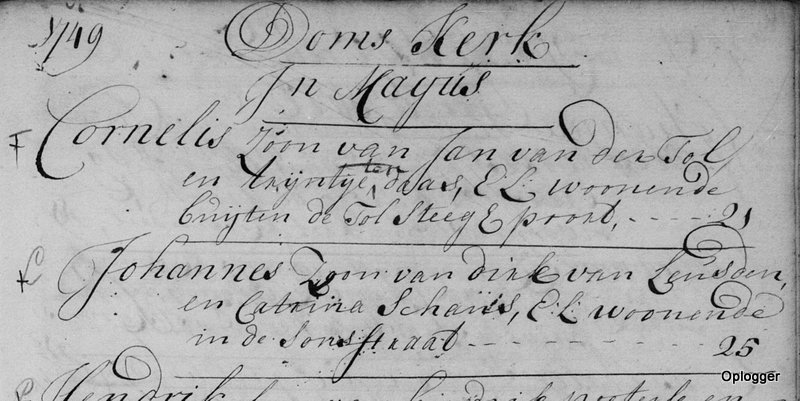 1749 Doms Kerk
In Mayus
F Cornelis Zoon van Jan van der Tol
en trijntje ten daas, E.L. woonende
buijten de Tol Steeg E poort, - - - - 21
Johannes Zoon van dirk van Leusden,
en Catrina Schaiis, E.L. woonende
in de Jons straat - - - - - - - 25
Hendrik
Oplogger